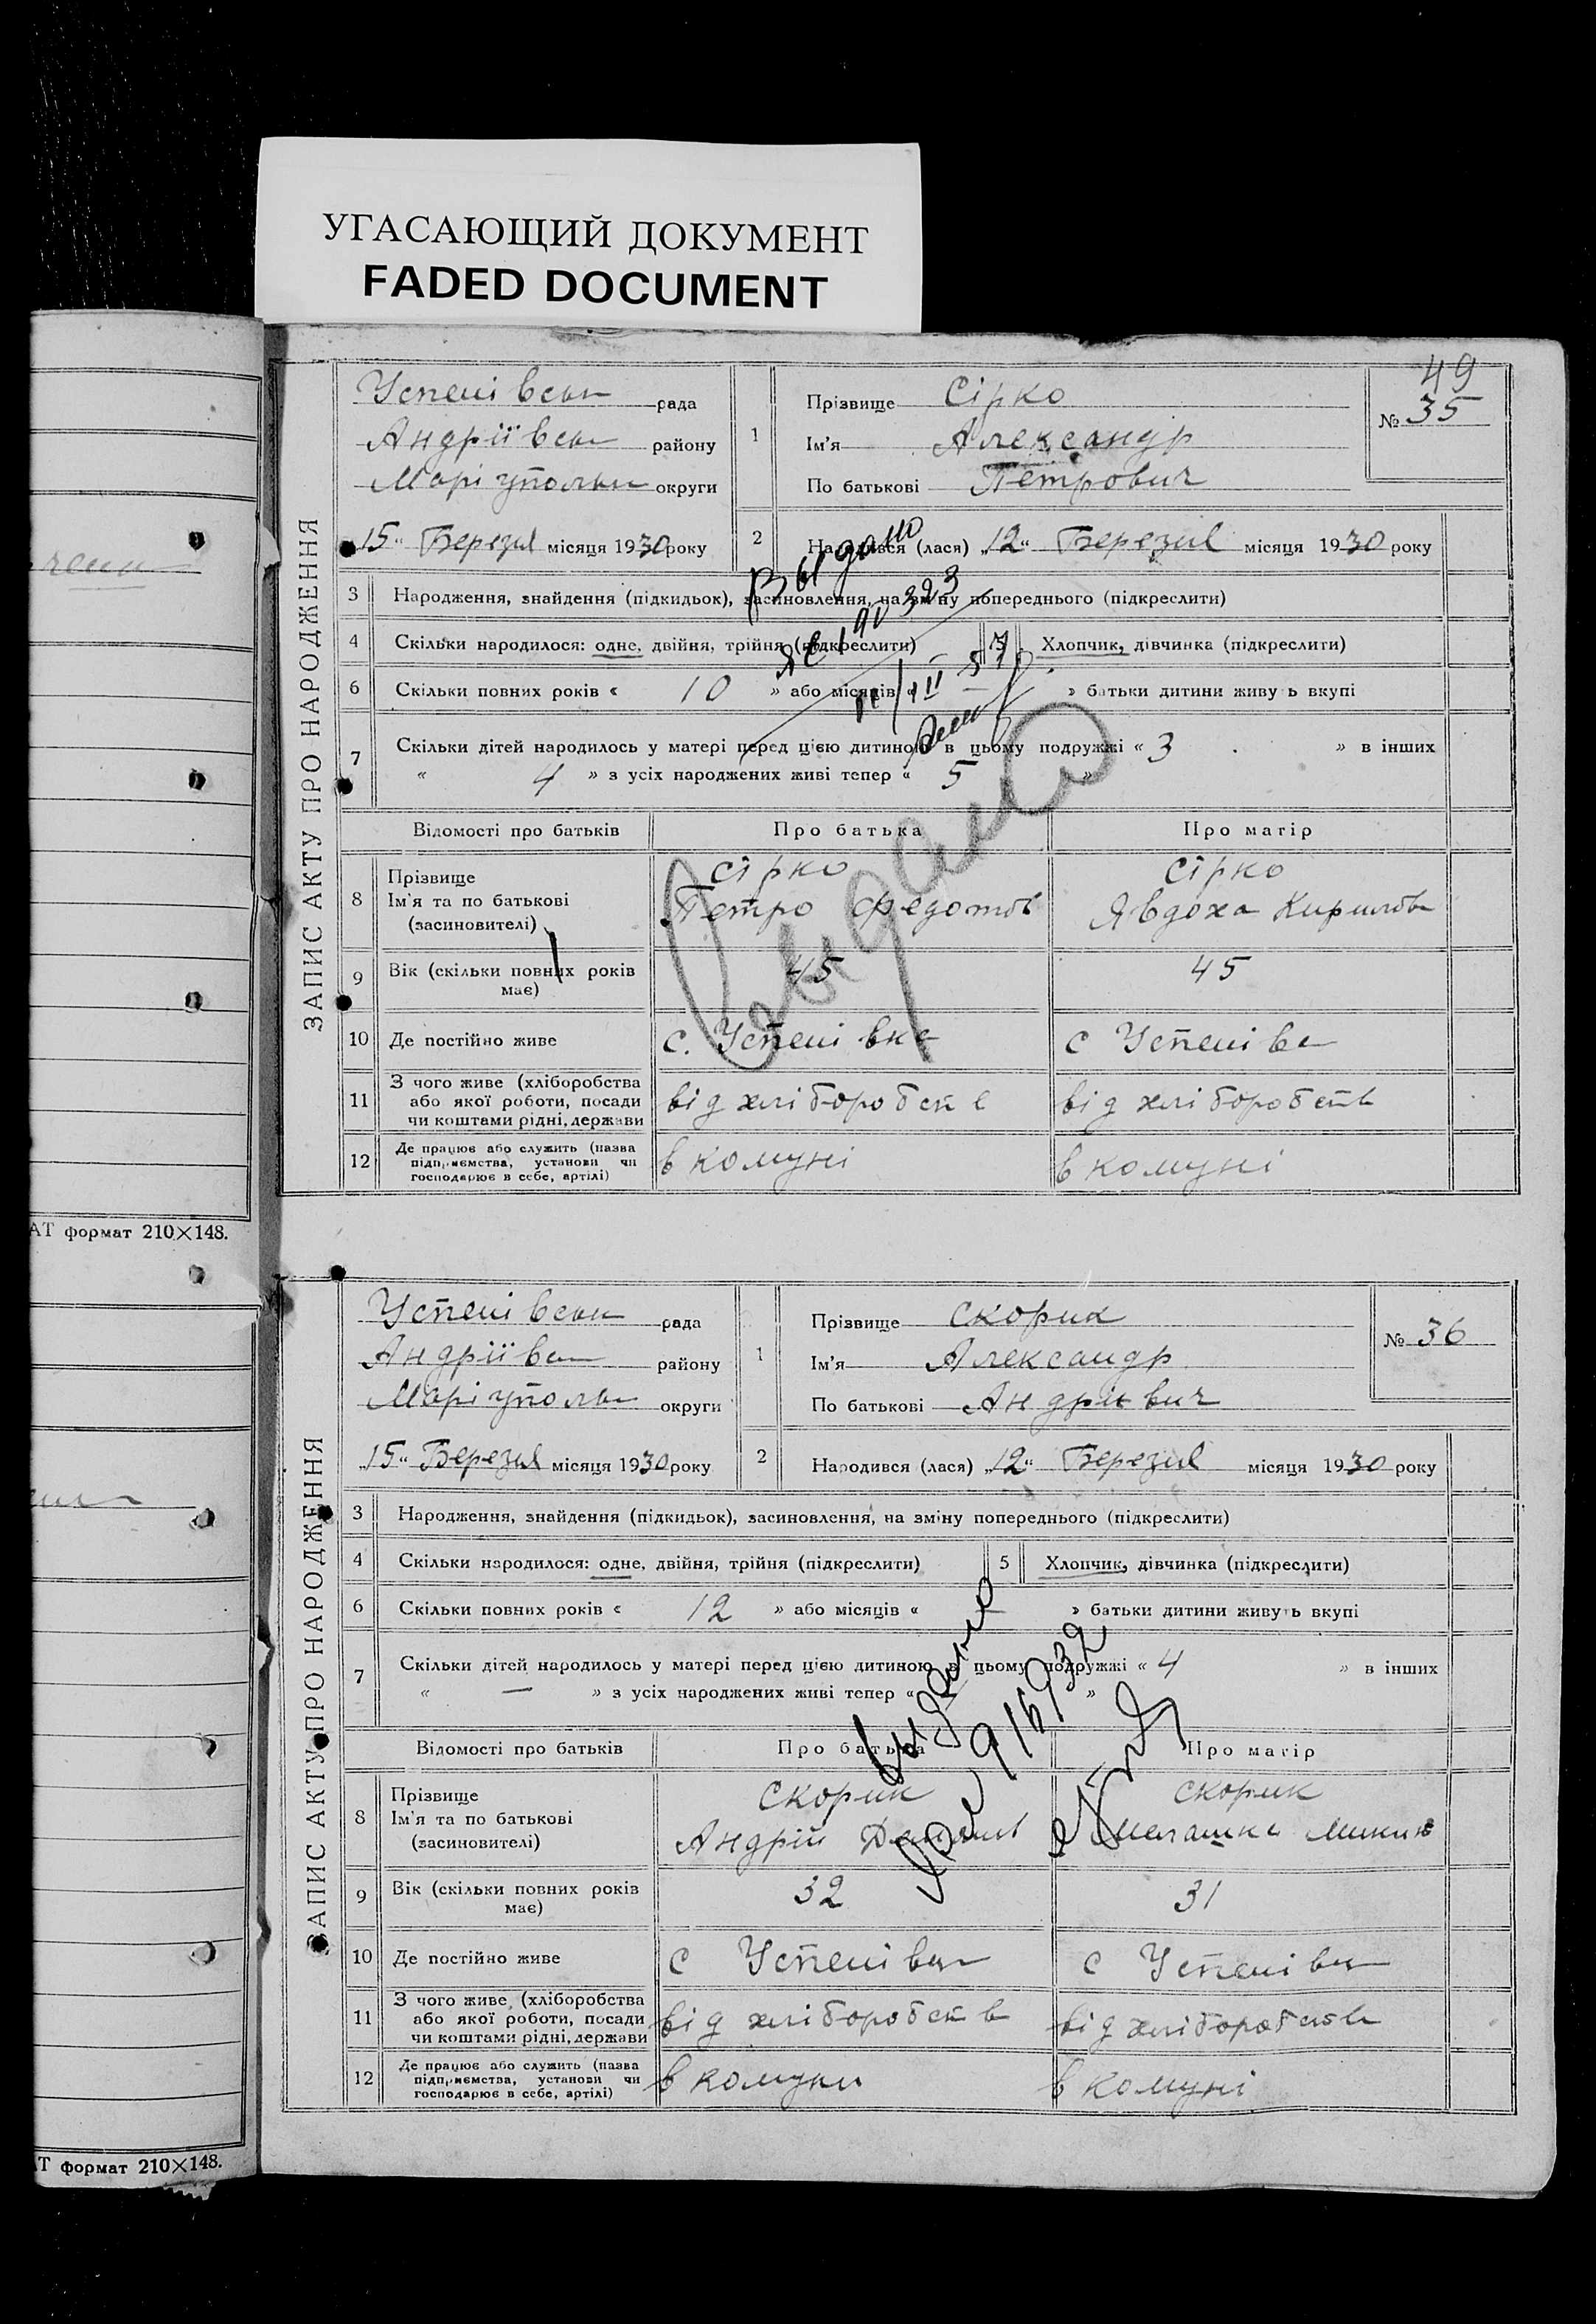 УГАСАЮЩИЙ ДОКУМЕНТ
FADED DOCUMENT
49
ЗАПИС АКТУ ПРО НАРОДЖЕННЯ
Успенівськ рада
Андріївськ району
Маріупольськ округи
15 Березня місяця 1930 року
№ 35
1
Прізвище Сірко
Ім'я Александр
По батькові Петрович
2 Народився (лася) „12" Березня місяця 1930 року
3 Народження, знайдення (підкидьок), засиновлення, на зміну попереднього (підкреслити)
4 Скільки народилося: одне, двійня, трійня (підкреслити) Хлопчик, дівчинка (підкреслити)
6 Скільки повних років « 10 » або місяців « — » батьки дитини живуть вкупі
7 Скільки дітей народилось у матері перед цією дитиною в цьому подружжі « 3 » в інших
« 4 » з усіх народжених живі тепер « 5 »
Выдано
Выдано
Відомості про батьків Про батька Про матір
8 Прізвище Сірко Сірко
Ім'я та по батькові Петро Федотов Явдоха Кирилов
(засиновителі)
9 Вік (скільки повних років має) 45 45
10 Де постійно живе с. Успенівка с Успенівка
11 З чого живе (хліборобства
або якої роботи, посади від хліборобств від хліборобств
чи коштами рідні, держави
12 Де працює або служить (назва
підприємства, установи чи в комуні в комуні
господарює в себе, артілі)
АТ формат 210×148.
ЗАПИС АКТУ ПРО НАРОДЖЕННЯ
Успенівськ рада
Андріївськ району
Маріупольськ округи
15 Березня місяця 1930 року
№ 36
1
Прізвище Скорик
Ім'я Александр
По батькові Андрійвич
2 Народився (лася) „12" Березня місяця 1930 року
3 Народження, знайдення (підкидьок), засиновлення, на зміну попереднього (підкреслити)
4 Скільки народилося: одне, двійня, трійня (підкреслити) 5 Хлопчик, дівчинка (підкреслити)
6 Скільки повних років « 12 » або місяців « — » батьки дитини живуть вкупі
7 Скільки дітей народилось у матері перед цією дитиною в цьому подружжі « 4 » в інших
« — » з усіх народжених живі тепер « »
выдано
9/6/932
Відомості про батьків Про батька Про матір
8 Прізвище Скорик Скорик
Ім'я та по батькові Андрій Мелашка
(засиновителі)
9 Вік (скільки повних років має) 32 31
10 Де постійно живе с Успенівка с Успенівка
11 З чого живе (хліборобства
або якої роботи, посади від хліборобств від хліборобств
чи коштами рідні, держави
12 Де працює або служить (назва
підприємства, установи чи в комуни в комуні
господарює в себе, артілі)
АТ формат 210×148.